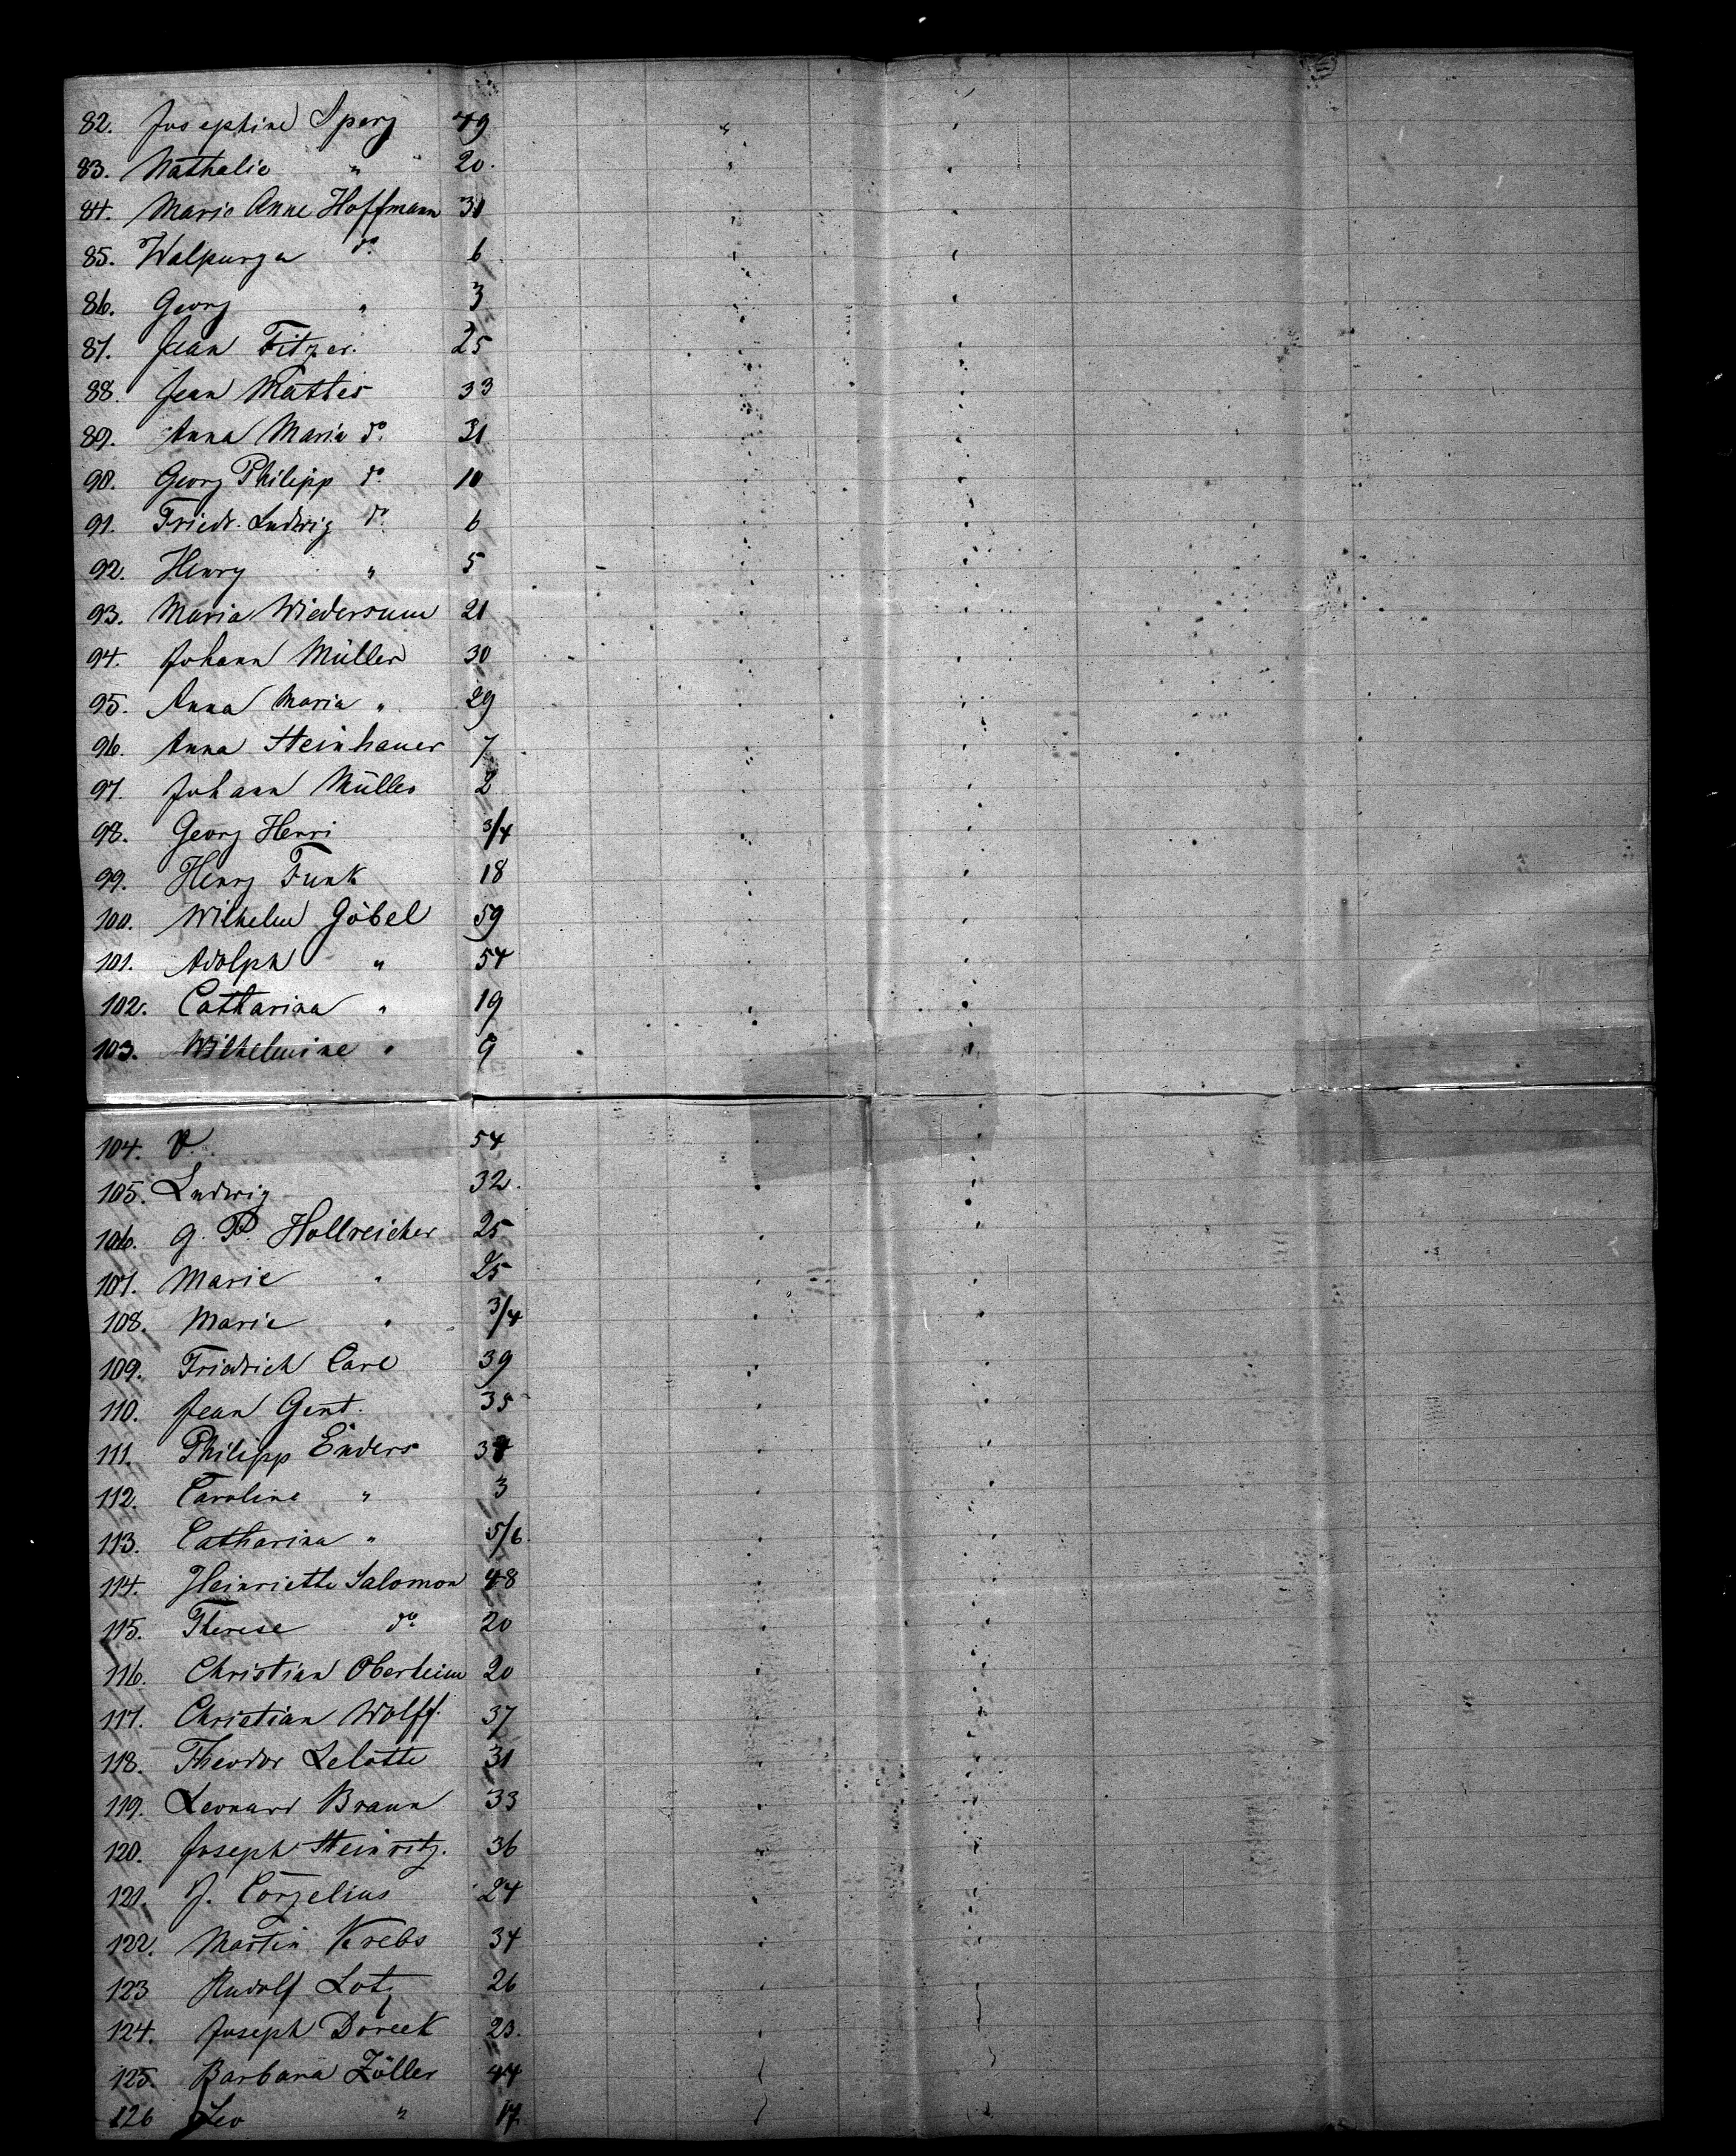 82. Josephine Sperz 49
83. Nathalie " 20.
84. Marie Anne Hoffmann 31
85. Walpurga do. 6
86. Georg " 3
87. Jean Fitzer. 25
88. Jean Mattes 33
89. Anna Maria do. 31
90. Georg Philipp do. 10
91. Friedr. Ludwig do. 6
92. Henry " 5
93. Maria Wiedersum 21
94. Johann Müller 30
95. Anna Maria " 29
96. Anna Steinhauer 7
97. Johann Müller 2
98. Georg Henri 3/4
99. Henry Funk 18
100. Wilhelm Göbel 59
101. Adolph " 54
102. Catharina " 19
103. Wilhelmine " 9
104. V. 54
105. Ludwig 32.
106. G. P. Hollreicher 25
107. Marie " 25
108. Marie " 3/4
109. Friedrich Carl 39
110. Jean Gent. 35
111. Philipp Enders 34
112. Caroline " 3
113. Catharina " 5/6.
114. Heinriette Salomon 48
115. Therese do. 20
116. Christian Oberheim 20
117. Christian Wolff. 37
118. Theodor Lelotte 31
119. Leonard Braun 33
120. Joseph Steinritz. 36
121. J. Corzelius 24
122. Martin Krebs 34
123 Rudolf Lotz 26
124. Joseph Doreck 23.
125. Barbara Zöller 44
126 Leo " 17